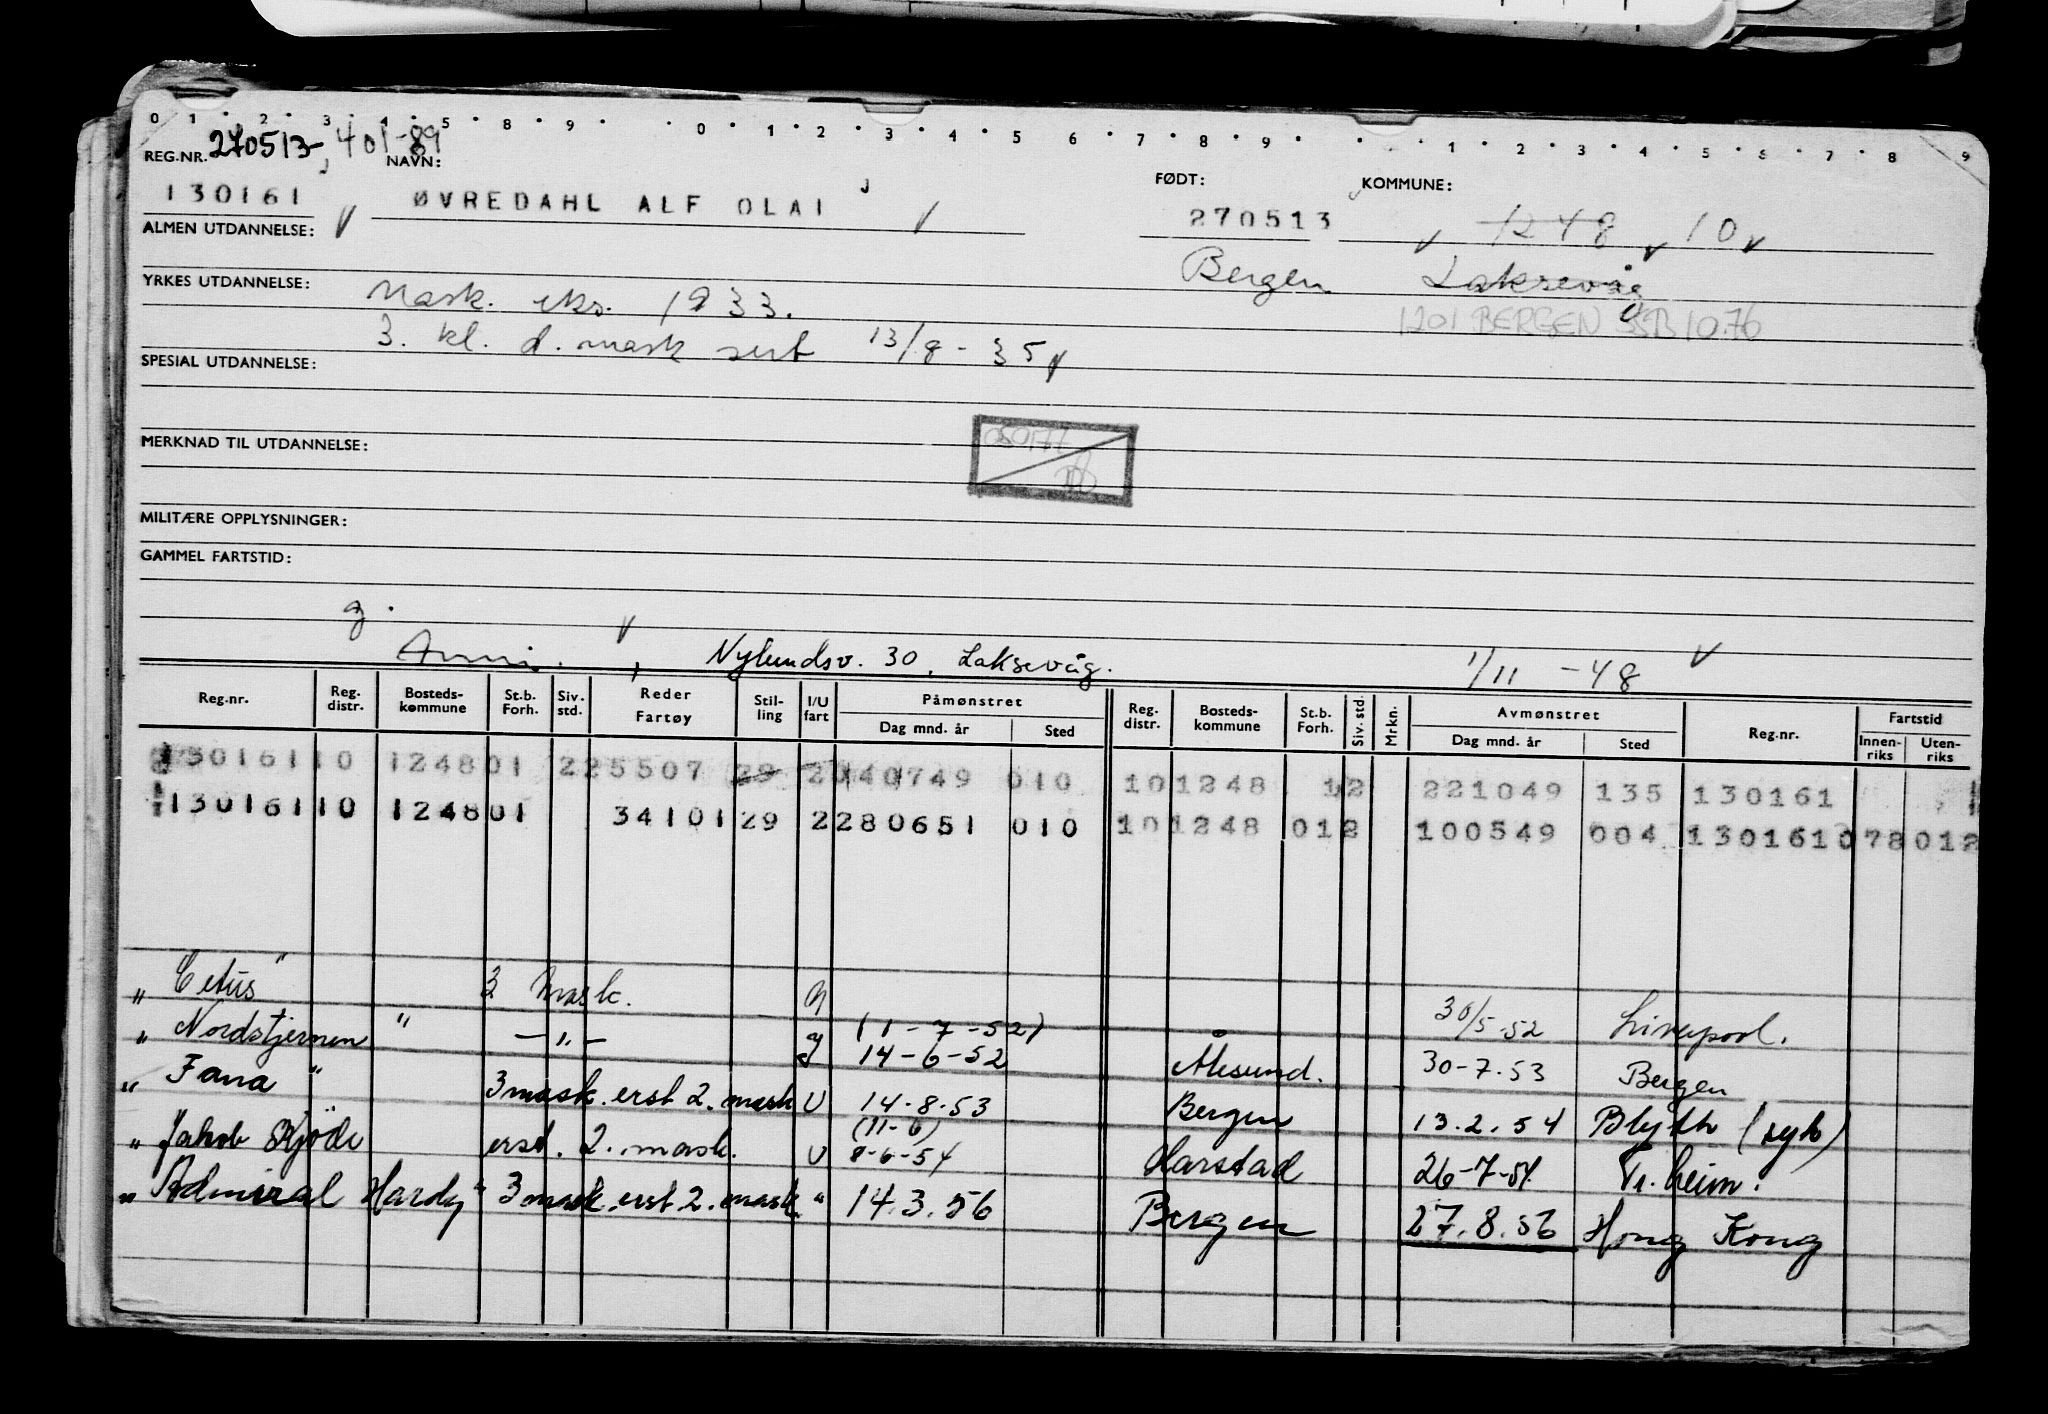 0 1 2 3 4 5 8 9 0 1 2 3 4 5 6 7 8 9 1 2 3 4 5 6 7 8 9
REG.NR. 270513, 401-89 NAVN: FØDT: KOMMUNE:
130161 ØVREDAHL ALF OLAI 270513 1248 10
ALMEN UTDANNELSE: Bergen Laksevåg
YRKES UTDANNELSE: Mask. eks. 1933. 1201 BERGEN SSB 10.76
3. kl. d. mask sert 13/8-35
SPESIAL UTDANNELSE:
MERKNAD TIL UTDANNELSE:
MILITÆRE OPPLYSNINGER:
GAMMEL FARTSTID:
g.
Anni, Nylundsv. 30, Laksevåg. 1/11-48
Reg.nr. Reg. distr. Bosteds-kommune St.b. Forh. Siv. std. Reder Fartøy Stil-ling I/U fart Påmønstret Dag mnd. år Sted Reg. distr. Bosteds-kommune St.b. Forh. Siv. std. Mrkn. Avmønstret Dag mnd. år Sted Reg.nr. Fartstid Innen-riks Uten-riks
130161 10 1248 01 2 25507 29 2 040749 010 10 1248 1 2 221049 135 130161
130161 10 1248 01 34101 29 2 280651 010 10 1248 01 2 100549 004 130161 078 012
"Cetus" 3 mask. 30/5-52 Liverpool.
"Nordstjernen" -"- (1-7-52) 14-6-52 Ålesund. 30-7-53 Bergen
"Fana" 3 mask. erst 2. mask U 14-8-53 Bergen 13.2.54 Blyth (syk)
"Jakob Kjöde erst. 2. mask. U (11-6) 8-6-54 Harstad 26-7-54 Tr.heim.
"Admiral Hardy" 3 mask. erst 2. mask. " 14.3.56 Bergen 27.8.56 Hong Kong